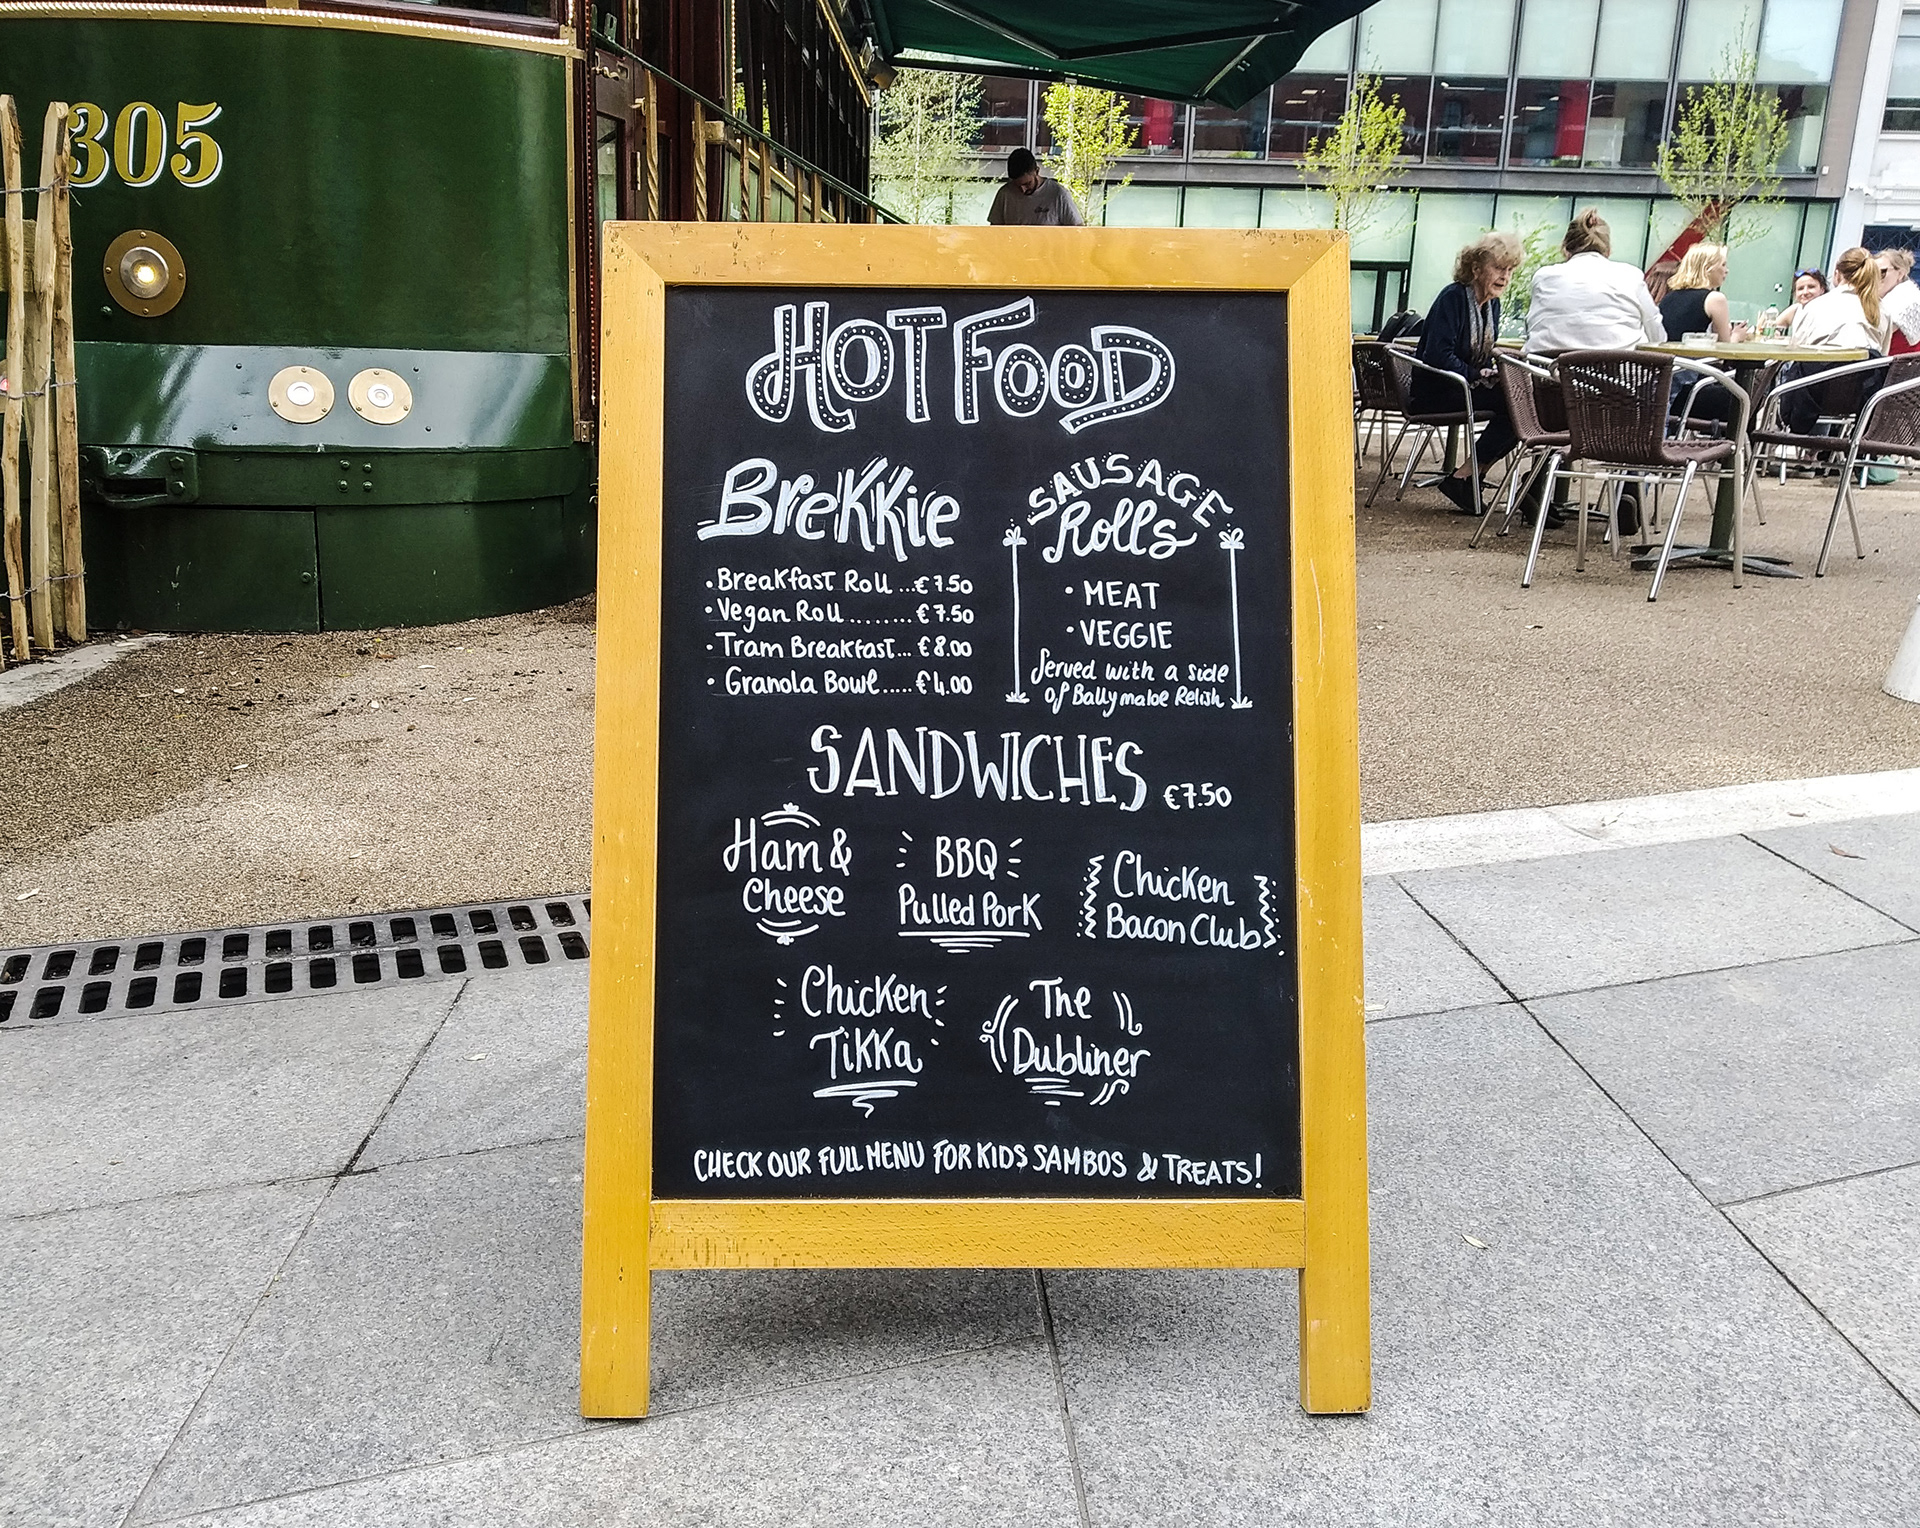 305
HOT FOOD
BreKKie
• Breakfast Roll ... € 7.50
• Vegan Roll ........ € 7.50
• Tram Breakfast... € 8.00
• Granola Bowl..... € 4.00
SAUSAGE
Rolls
• MEAT
• VEGGIE
Served with a side
of Ballymaloe Relish
SANDWICHES €7.50
Ham &
Cheese
BBQ
Pulled Pork
Chicken
Bacon Club
Chicken
Tikka
The
Dubliner
CHECK OUR FULL MENU FOR KIDS SAMBOS & TREATS!